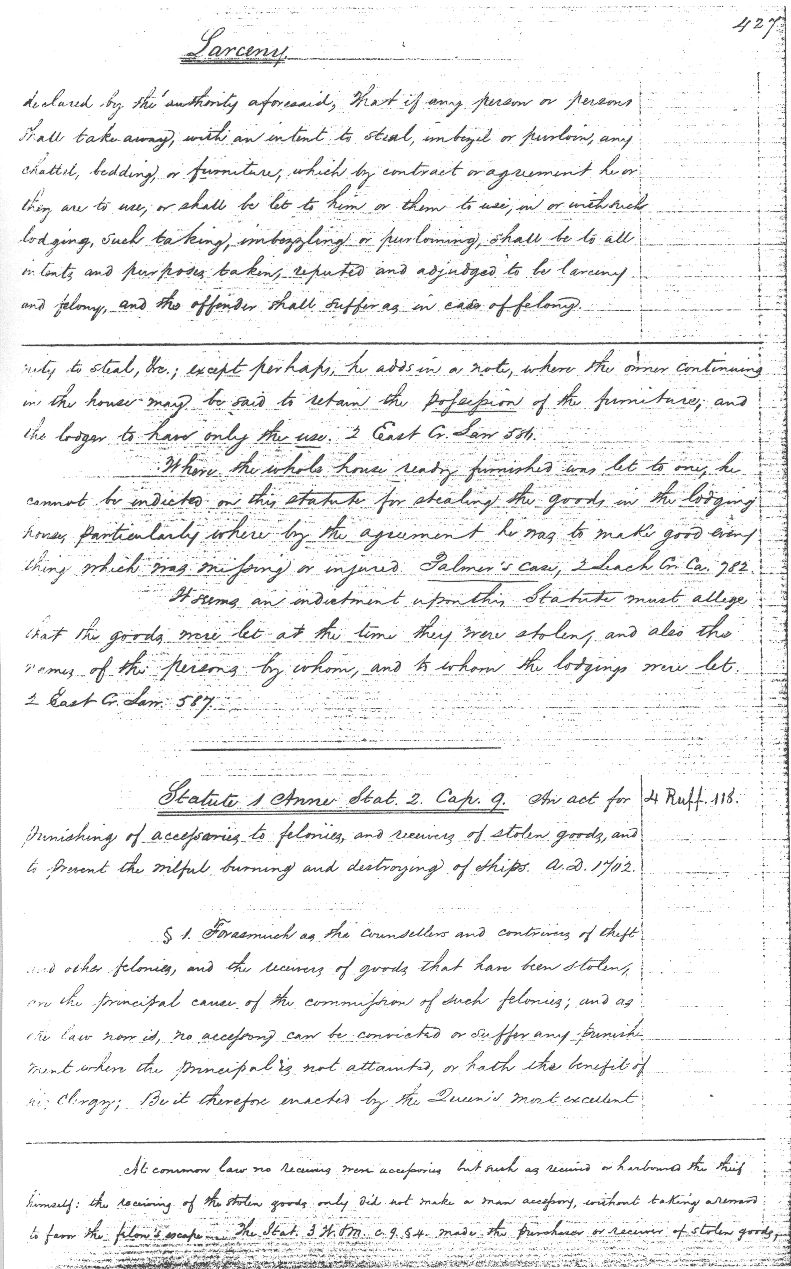 427
Larceny.
declared by the authority aforesaid, That if any person or persons
shall take away, with an intent to steal, imbezil or purloin, any
chattel, bedding, or furniture, which by contract or agreement he or
they are to use, or shall be let to him or them to use, in or with such
lodging, such taking, imbezzling or purloining, shall be to all
intents and purposes taken, reputed and adjudged to be larceny
and felony, and the offender shall suffer as in case of felony.
nity to steal, &c.; except perhaps, he adds in a note, where the owner continuing
in the house may be said to retain the possession of the furniture; and
the lodger to have only the use. 2 East Cr. Law 586.
Where the whole house ready furnished was let to one, he
cannot be indicted on this statute for stealing the goods in the lodging
house, particularly where by the agreement he was to make good every
thing which was missing or injured. Palmer's case, 2 Leach Cr. Ca. 782.
It seems an indictment upon this Statute must allege
that the goods were let at the time they were stolen, and also the
names of the persons by whom, and to whom the lodgings were let.
2 East Cr. Law. 587.
Statute 1 Anne Stat. 2. Cap. 9. An act for
4 Ruff. 118.
punishing of accessaries to felonies, and receivers of stolen goods, and
to prevent the wilful burning and destroying of ships. A.D. 1702.
§ 1. Forasmuch as the counsellers and contrivers of theft
and other felonies, and the receivers of goods that have been stolen,
are the principal cause of the commission of such felonies; and as
the law now is, no accessary can be convicted or suffer any punish
ment where the principal is not attainted, or hath the benefit of
his Clergy; Be it therefore enacted by the Queen's most excellent
At common law no receivers were accessaries but such as received or harboured the thief
himself: the receiving of the stolen goods only did not make a man accessory, without taking a reward
to favor the felon's escape. The Stat. 3 W. & M. c. 9. § 4. made the purchaser or receiver of stolen goods,